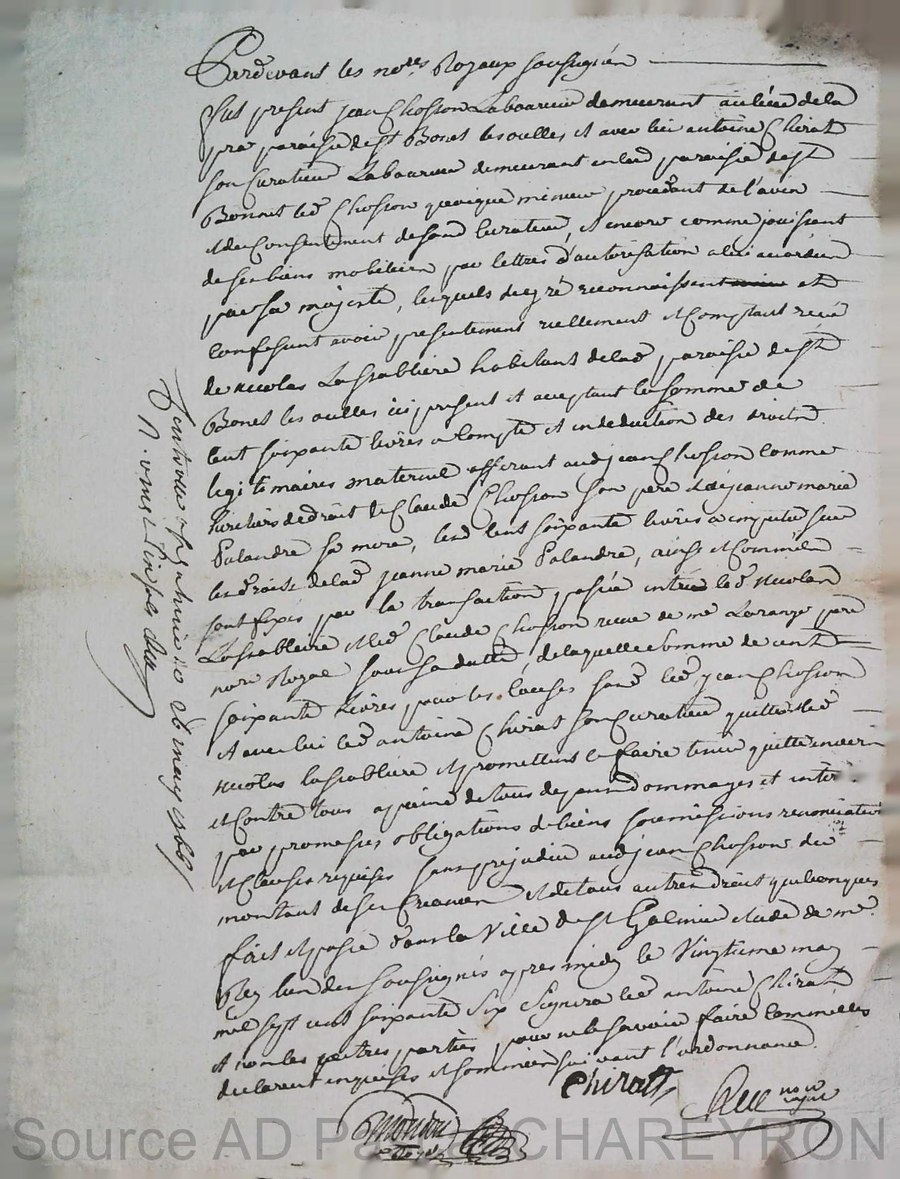 Pardevant les no.res Royaux soussignés
fut present jean Chosson Laboureur demeurant au lieu de la
pra paroisse de St Bonet les oulles et avec lui antoine Chirat
son Curateur Laboureur demeurant en lad paroisse de St
Bonnet led Chosson quoique mineur procedant de l'avis
et du Consentement de sond Curateur, et encore comme jouissant
de ses biens mobiliers par lettres d'autorisation a lui accordées
par sa majesté, lesquels de gré reconnaissent et
Confessent avoir presentement reellement et Comptant receu
de nicolas Lassabliere habitant de lad paroisse de St
Bonet les oulles ici present et acceptant la somme de
Cent soixante livres a Compte et en deduction des droits
legitimaires maternel afferant aud jean Chosson comme
heritier de droit de Claude Chosson son pere et de jeanne marie
Palandre sa mere, lesd Cent soixante livres a imputer sur
les droits de lad jeanne marie Palandre, ainsi et Comme ils
sont fixés par la transaction passée entre led Nicolas
Lassabliere et led Claude Chosson receue de me Laranje pere
nore Royal sous sa datte, de laquelle somme de cent
soixante Livres pour les Causes sand led jean Chosson
et avec lui led antoine Chirat son Curateur quitte led
nicolas lassabliere et promettent le faire tenir quitte envers
et Contre tous a peine de tous depens dommages et inter
par promesses obligations de biens soumissions renonciations
et Clauses requises sans prejudice aud jean Chosson du
montant de ses Creances et de tous autres droits quelconques
fait et passé dans la Ville de St Galmier etude de me
Rey l'un des soussignés apres midy le Vingtieme may
mil sept cent soixante six Signera led antoine Chirat
et non les autres parties pour ne le savoir faire Comme elles
declarent enquises et sommées suivant l'ordonnance.
Chiratt
nore
royal
St galmier 26 may 1766